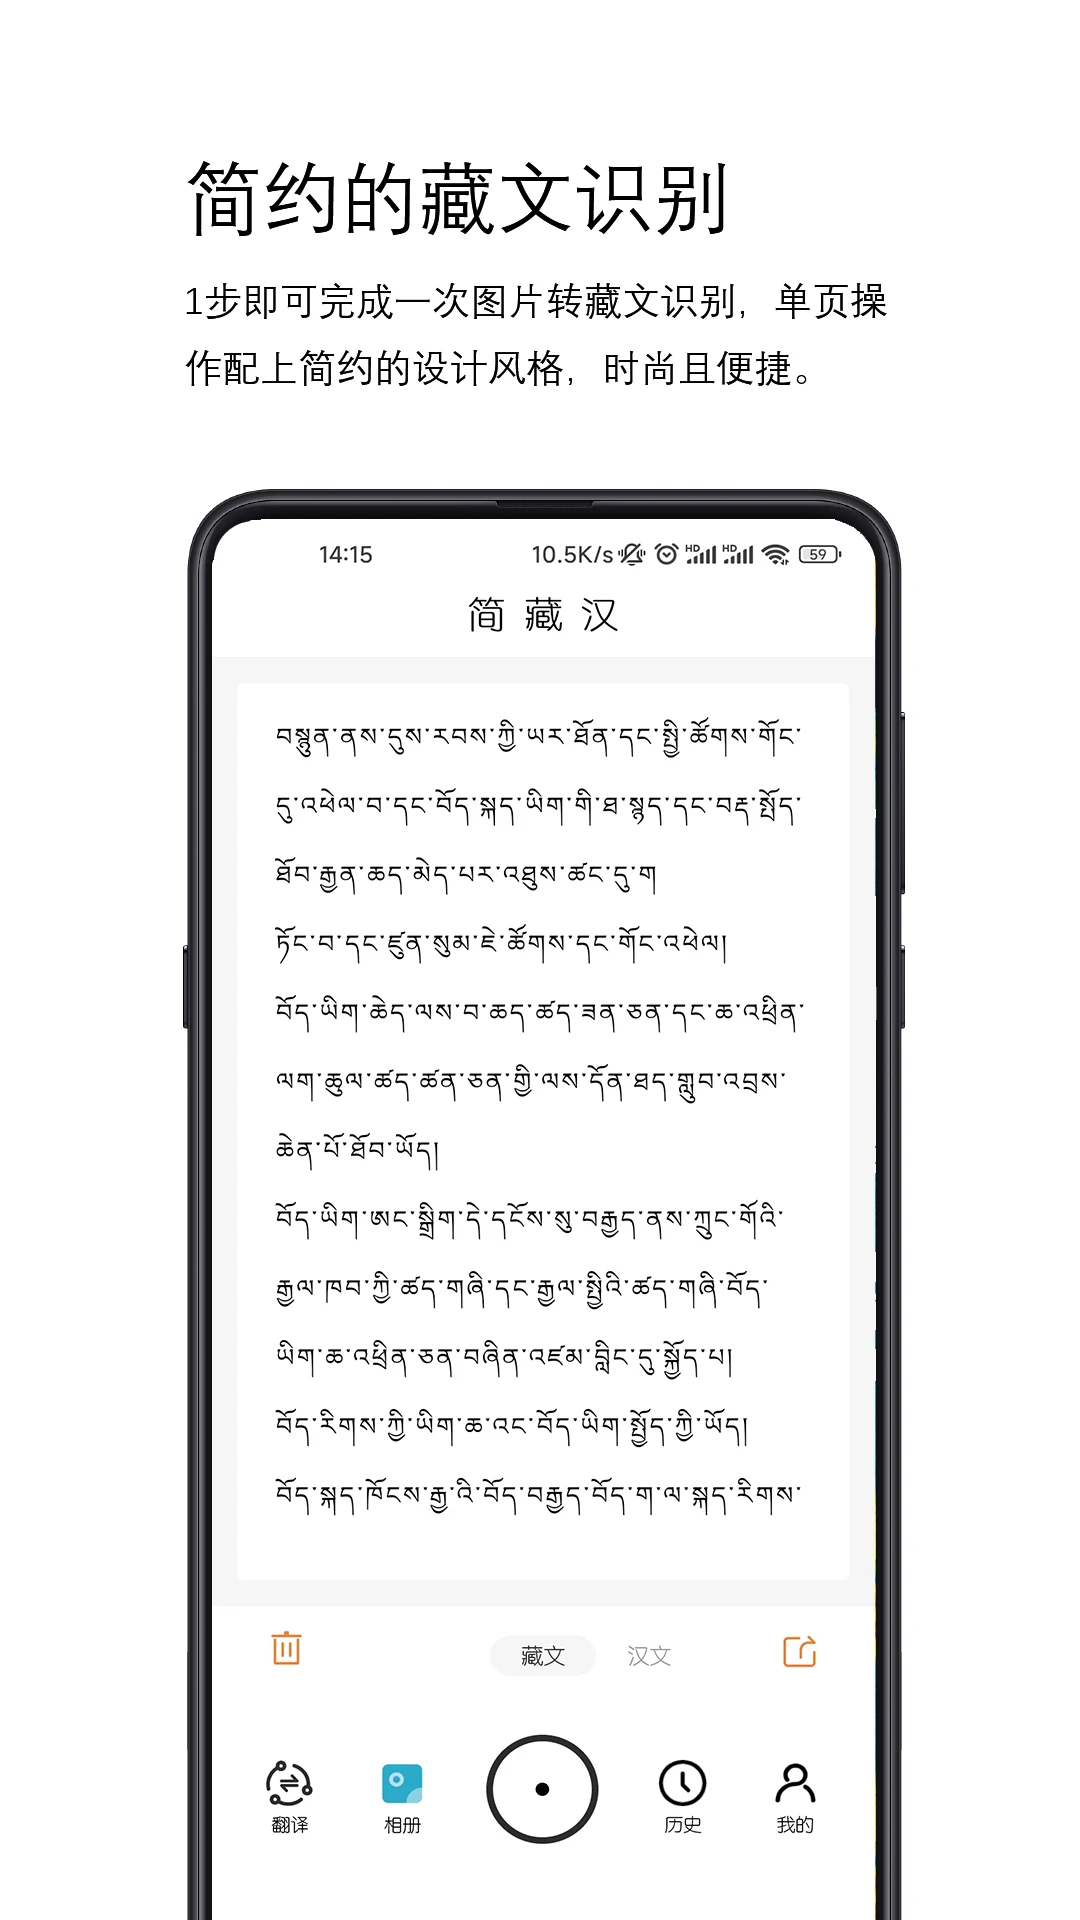 简约的藏文识别
1步即可完成一次图片转藏文识别，单页操
作配上简约的设计风格，时尚且便捷。
14:15 10.5K/s HD HD 59
简藏汉
བསྟུན་ནས་དུས་རབས་ཀྱི་ཡར་ཐོན་དང་སྤྱི་ཚོགས་གོང་
དུ་འཕེལ་བ་དང་བོད་སྐད་ཡིག་གི་ཐ་སྙད་དང་བརྡ་སྤྲོད་
ཐོབ་རྒྱུན་ཆད་མེད་པར་འཐུས་ཚང་དུ་ག
ཏོང་བ་དང་ཛུན་སུམ་ཇེ་ཚོགས་དང་གོང་འཕེལ།
བོད་ཡིག་ཆེད་ལས་བ་ཆད་ཚད་ཟན་ཅན་དང་ཆ་འཕྲིན་
ལག་རྩུལ་ཚད་ཚན་ཅན་གྱི་ལས་དོན་ཐད་གྲུབ་འབྲས་
ཆེན་པོ་ཐོབ་ཡོད།
བོད་ཡིག་ཨང་སྒྲིག་དེ་དངོས་སུ་བརྒྱད་ནས་ཀྲུང་གོའི་
རྒྱལ་ཁབ་ཀྱི་ཚད་གཞི་དང་རྒྱལ་སྤྱིའི་ཚད་གཞི་བོད་
ཡིག་ཆ་འཕྲིན་ཅན་བཞིན་འཛམ་གླིང་དུ་སྐྱོད་པ།
བོད་རིགས་ཀྱི་ཡིག་ཆ་འང་བོད་ཡིག་སྤྱོད་ཀྱི་ཡོད།
བོད་སྐད་ཁོངས་རྒྱ་འི་བོད་བརྒྱད་བོད་ག་ལ་སྐད་རིགས་
藏文 汉文
翻译 相册 历史 我的